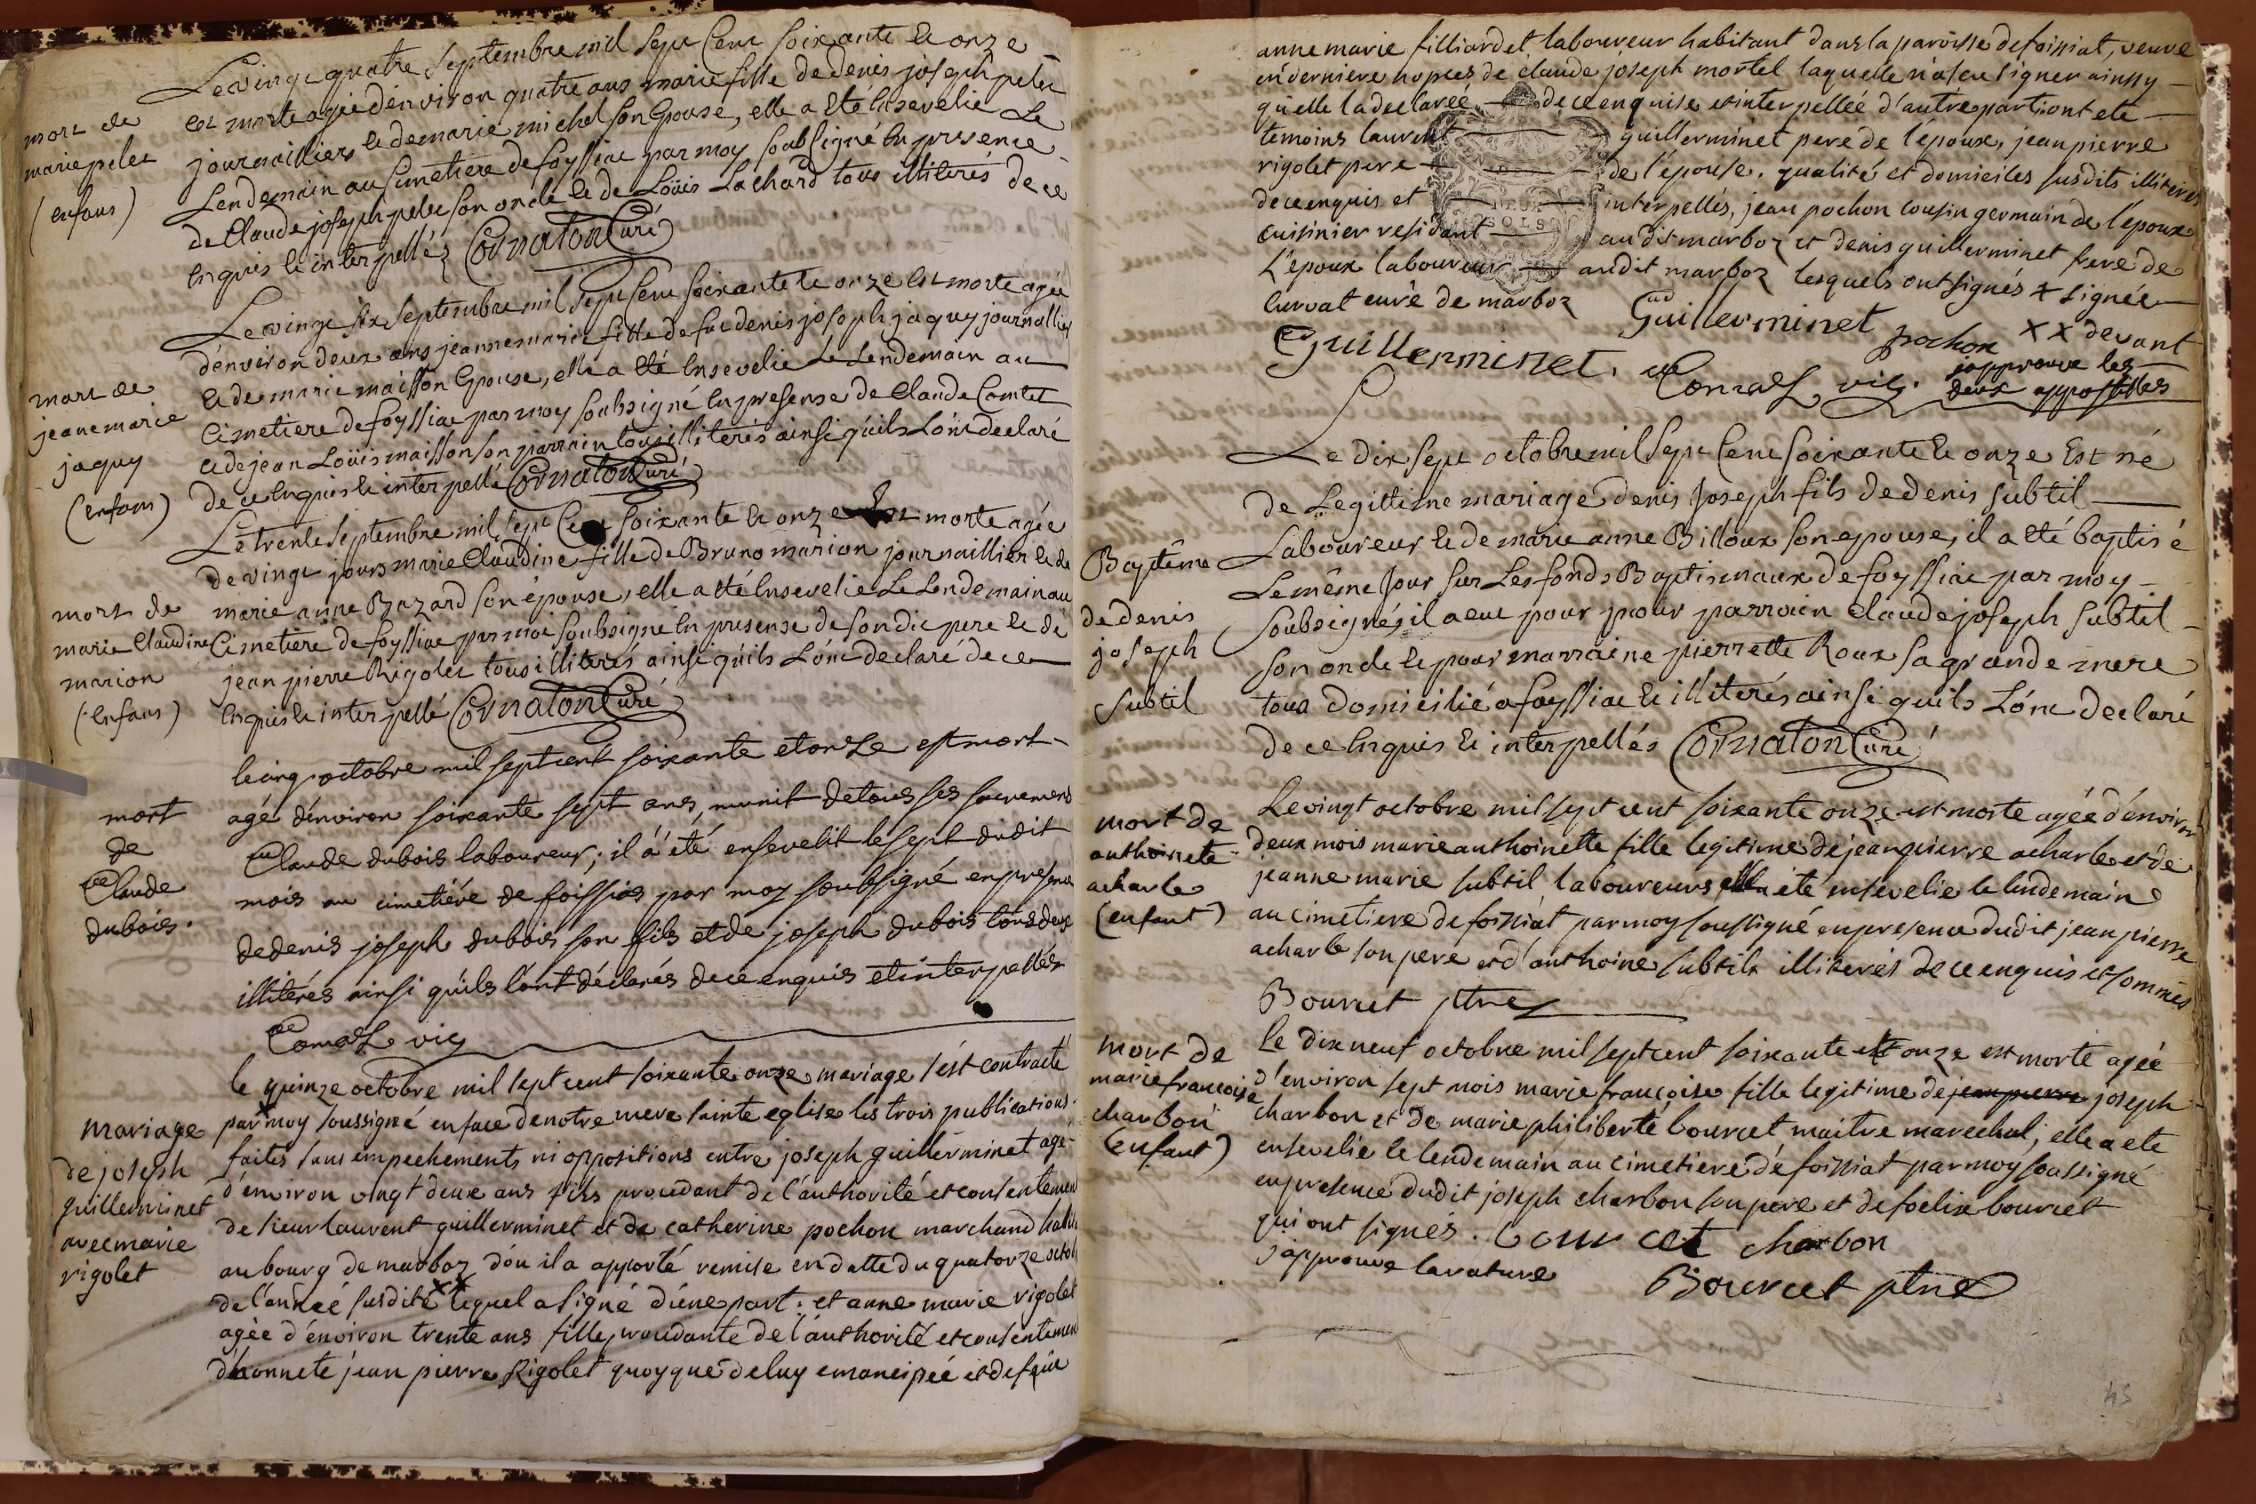 mort de
marie pelet
(enfans)
Le vingt quatre Septembre mil Sept Cent Soixante et onze
est morte agée dénviron quatre ans marie fille de denis joseph pelet
journaillier et de marie michel son Epouse, elle a été Ensevelie Le
Lendemain au Simetiere de foyssiac par moy soubsigné En presence
de Claude joseph pelet son oncle et de Loüis Lachard tous illiterés de ce
Enquis et interpellés Cornaton Curé
mort de
jeane marie
jaquy
(enfans)
Le vingt six Septembre mil Sept Cent Soixante et onze Est morte agée
dénviron deux ans jeanne marie fille de feu denis joseph jaquy journallier
et de marie maisson Epouse, elle a été Ensevelie Le Lendemain au
Cimetiere de foyssiac par moy soubsigné En presense de Claude Comtet
et de jean Loüis maisson son parrain tous illiterés ainsi quils Lónt declaré
de ce Enquis et interpellé Cornaton Curé
mort de
marie Claudine
marion
(enfans)
Le trente Septembre mil Sept Cent Soixante et onze Est morte agée
de vingt jours marie Claudine fille de Bruno marion journaillier et de
marie anne Bazard son épouse, elle a été Ensevelie Le Lendemain au
Cimetiere de foyssiac par moi soubsigné En presense de son dit pere et de
jean pierre Rigolet tous illiterés ainsi quils Lónt declaré de ce
Enquis et interpellé Cornaton Curé
mort
de
Claude
dubois.
le cinq octobre mil sept cent soixante et onze est mort
agé dénviron soixante sept ans, munit de tous ses sacremens
Claude dubois laboureur; il á été ensevelit le sept dudit
mois au cimetiére de foissias par moy soubsigné en présence
de denis joseph dubois son fils et de joseph dubois tous deux
illitérés ainsi quils lónt déclarés de ce enquis et interpellés
vic
mariage
de joseph
guillerminet
avec marie
rigolet
le quinze octobre mil sept cent soixante onze mariage s'est contracté
par moy soussigné en face de notre mere sainte eglise les trois publications
faites sans empechements ni oppositions entre joseph guillerminet agé
d'environ vingt deux ans fils procedant de l'authorité et consentement
de sieur laurent guillerminet et de catherine pochon marchand
au bourg de marboz dóu il a apporté remise en datte du quatorze
de l'année susdite xx lequel a signé d'une part. et anne marie rigolet
agée d'environ trente ans fille procedante de l'authorité et consentement
d'honnete jean pierre Rigolet quoyque de luy emancipée et de feüe
anne marie filliardet laboureur habitant dans la paroisse de foissiat, veuve
en derniere nopces de claude joseph mortel laquelle n'a seu signer ainsy
qu'elle la declarée de ce enquise et interpellée d'autre part ont ete
temoins laurent guillerminet pere de l'epoux, jean pierre
rigolet pere de l'épouse. qualités et domiciles susdits illiterés
de ce enquis et interpellés, jean pochon cousin germain de l'époux
cuisinier residant audit marboz et denis guillerminet frere de
L'epoux laboureur audit marboz lesquels ont signés x signée
curvat curé de marboz Guillerminet pochon xx devant
Guillerminet. vic. japprouve les
deux appostilles
Baptême
de denis
joseph
Subtil
Le dix sept octobre mil Sept Cent Soixante et onze Est né
de Legittime mariage denis Joseph fils de denis Subtil
Laboureur et de marie anne Billoux son epouse, il a été baptisé
Le même Jour Sur Les fonds Baptismaux de foyssiac par moy
soubsigné, il a eut pour pour parrain Claude joseph Subtil
son oncle et pour marraine pierrette Roux sa grande mere
tous Domicilié a foyssiac et illiterés ainsi quils Lónt declaré
de ce Enquis et interpellés Cornaton Curé
mort de
anthoinete
acharle
(enfant)
Le vingt octobre mil sept cent soixante onze est morte agée d'environ
deux mois marie anthoinette fille legitime de jean pierre acharle et de
jeanne marie subtil laboureurs elle a été ensevelie le lendemain
au cimetiere de foissiat par moy soussigné en presence dudit jean pierre
acharle son pere et d'anthoine subtil illiterés de ce enquis et sommés
Bourcet ptre
mort de
marie francoise
charbon
(enfant)
Le dix neuf octobre mil sept cent soixante et onze est morte agée
d'environ sept mois marie françoise fille legitime de jean pierre joseph
charbon et de marie philiberte bourcet maitre marechal; elle a ete
ensevelie le lendemain au cimetiere de foissiat par moy soussigné
en presence dudit joseph charbon son pere et de foelix bourcet
qui ont signés. bourcet charbon
j'approuve la rature Bourcet ptre
43